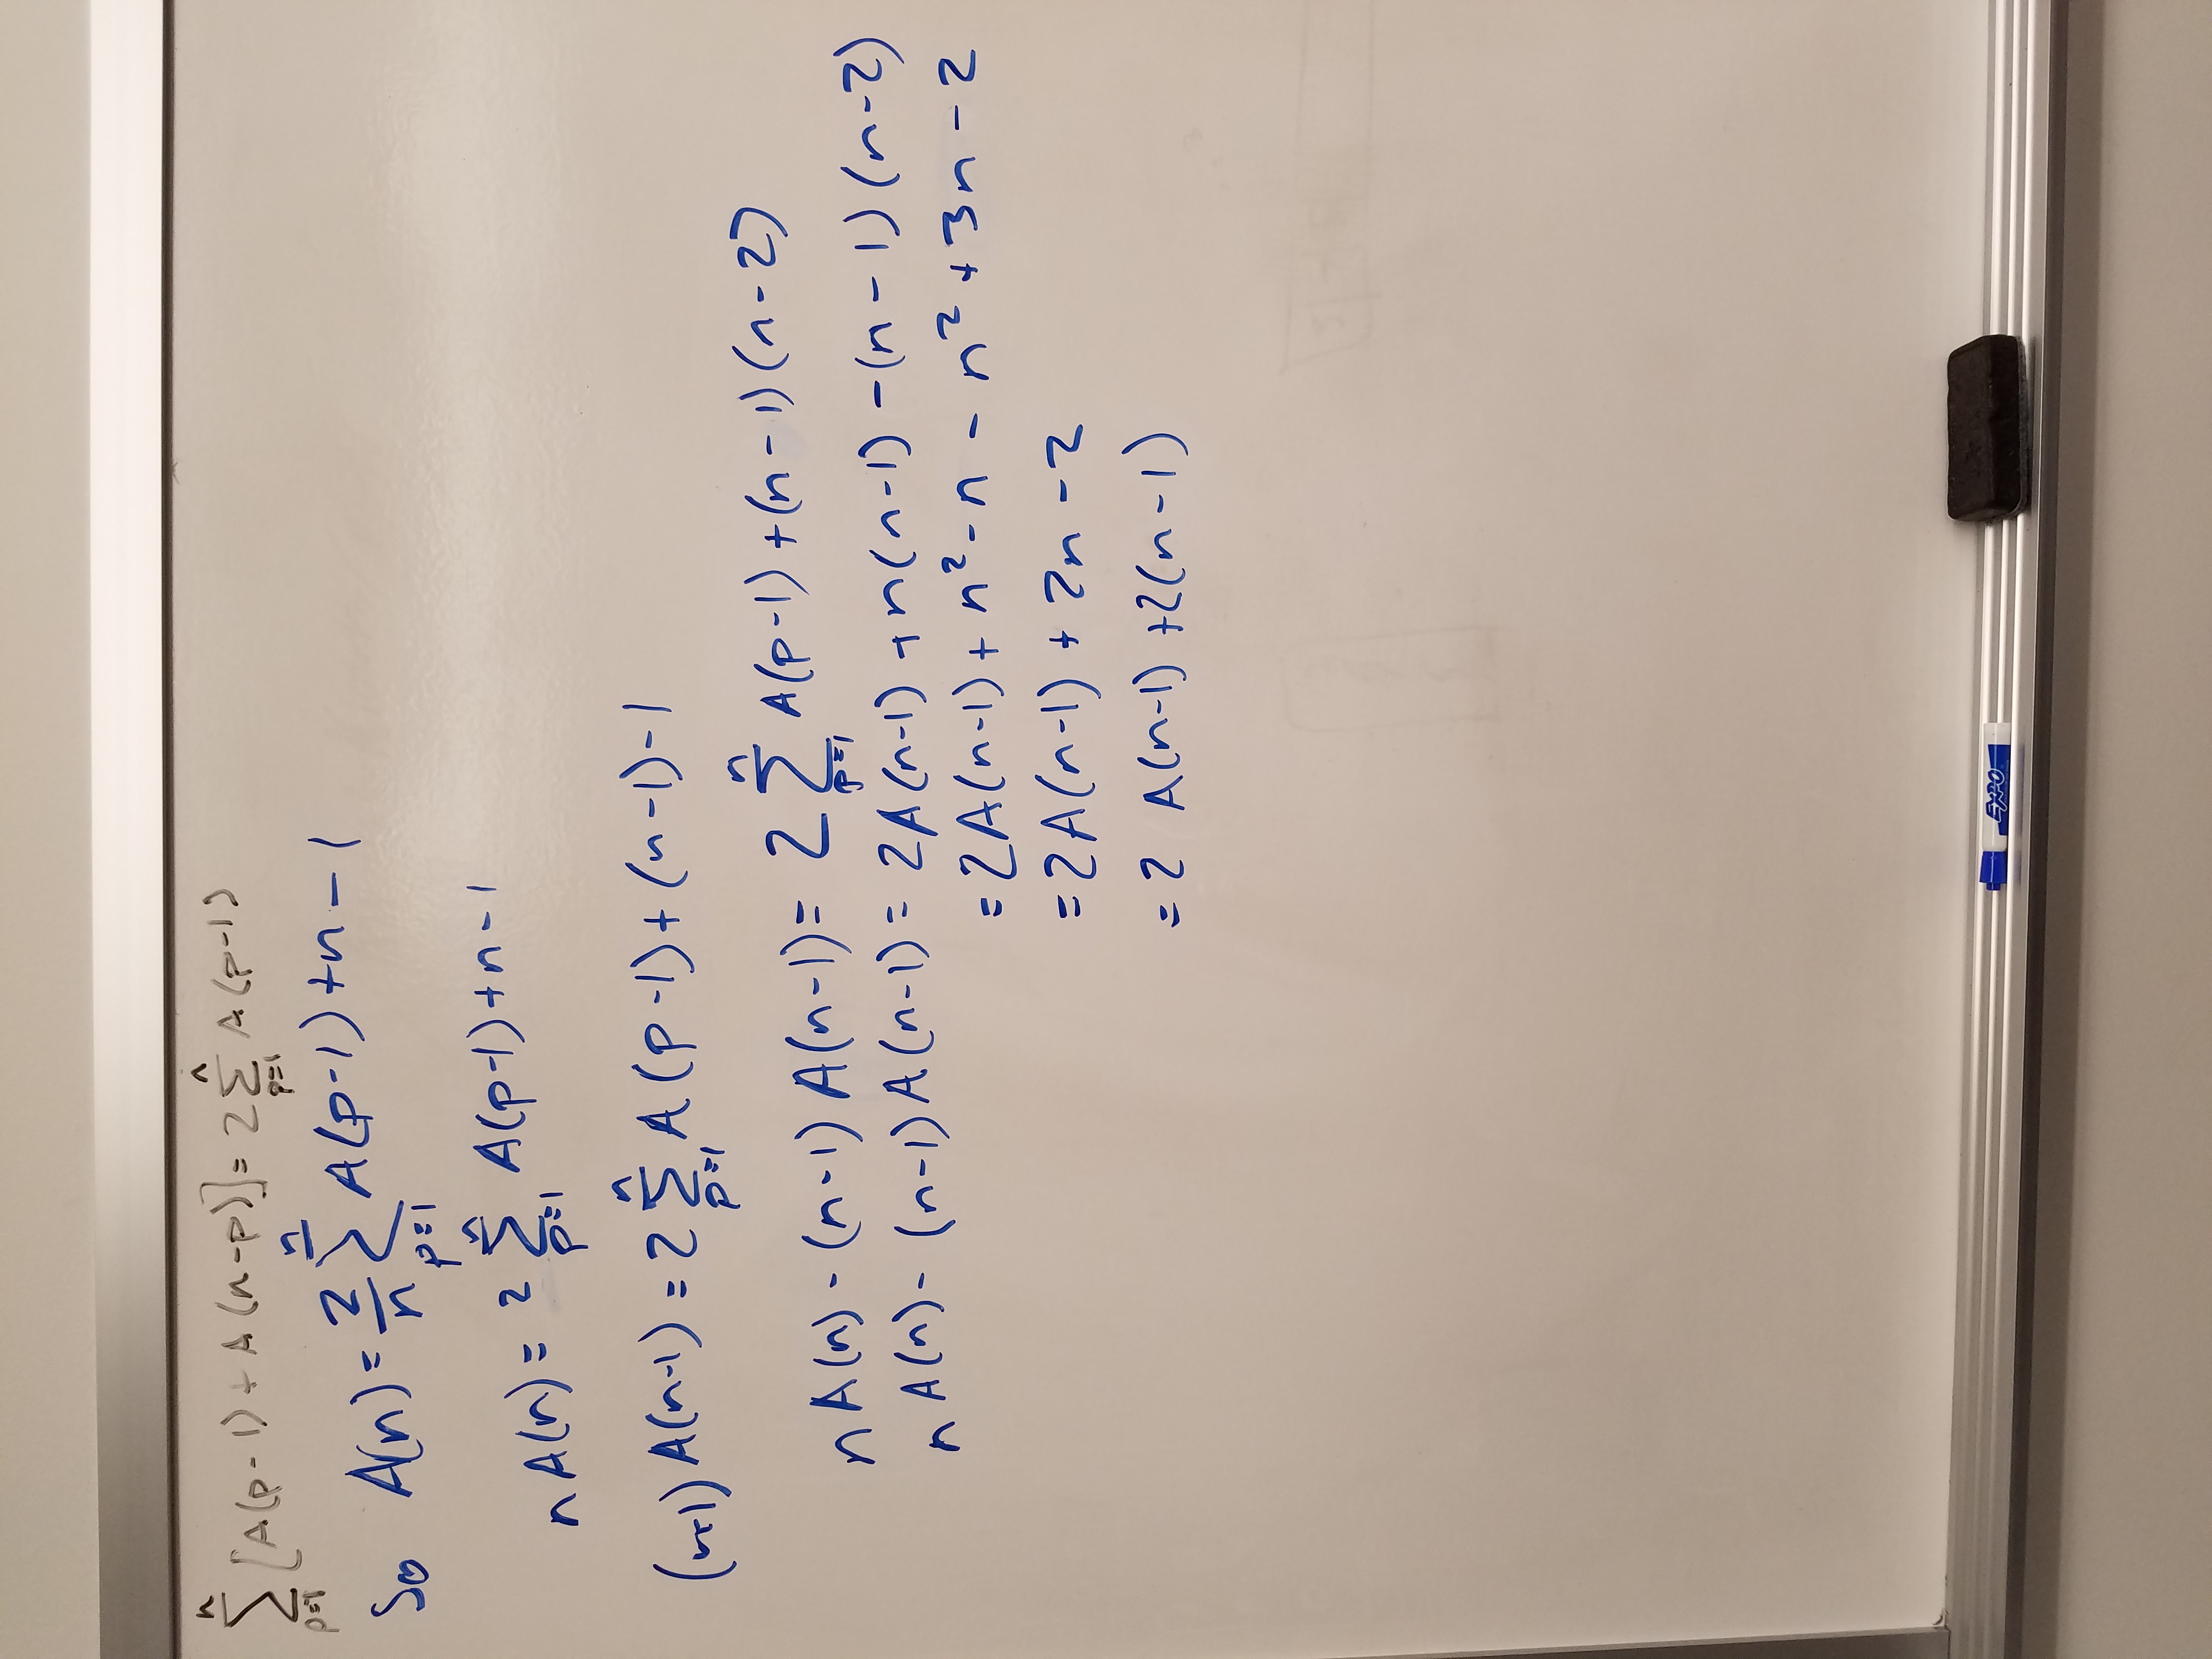 n
∑ [A(p-1) + A(n-p)] = 2 ∑ A(p-1)
p=1
n
p=1
So A(n) = 2/n ∑_{p=1}^{n} A(p-1) + n - 1
n A(n) = 2 ∑_{p=1}^{n} A(p-1) + n - 1
(n-1) A(n-1) = 2 ∑_{p=1}^{n} A(p-1) + (n-1) - 1
n A(n) - (n-1) A(n-1) = 2 ∑_{p=1}^{n} A(p-1) + (n-1)(n-2)
n A(n) - (n-1) A(n-1) = 2A(n-1) + n(n-1) - (n-1)(n-2)
= 2A(n-1) + n² - n - n² + 3n - 2
= 2A(n-1) + 2n - 2
= 2 A(n-1) + 2(n-1)
EXPO